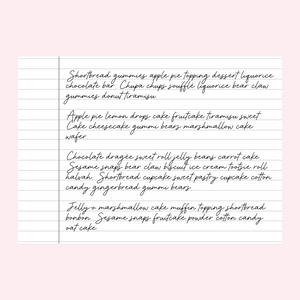 Shortbread gummies apple pie topping dessert liquorice
chocolate bar. Chupa chups soufflé liquorice bear claw
gummies donut tiramisu.
Apple pie lemon drops cake fruitcake tiramisu sweet.
Cake cheesecake gummi bears marshmallow cake
wafer.
Chocolate dragée sweet roll jelly beans carrot cake.
Sesame snaps bear claw biscuit ice cream tootsie roll
halvah. Shortbread cupcake sweet pastry cupcake cotton
candy gingerbread gummi bears.
Jelly-o marshmallow cake muffin topping shortbread
bonbon. Sesame snaps fruitcake powder cotton candy
oat cake.